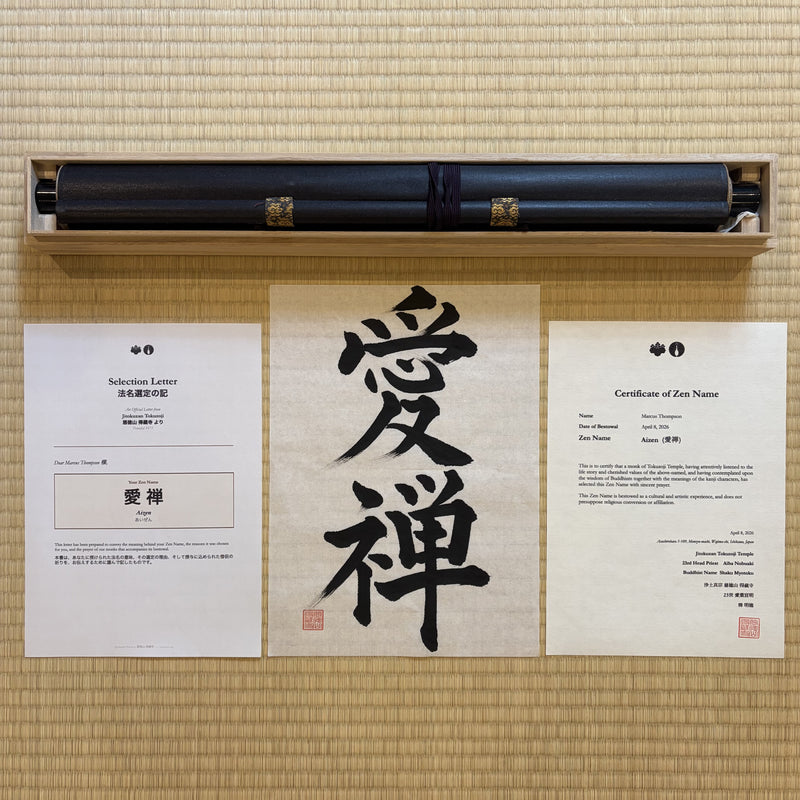 Selection Letter
法名選定の記
An Official Letter from
Jizokuzan Tokuzoji
より
Dear Marcus Thompson 様
Your Zen Name
愛禅
Aizen
あいぜん
This letter has been prepared to convey the meaning behind your Zen Name, the reasons it was chosen
for you, and the prayer of our monks that accompanies its bestowal.
本書は、あなたに授けられた法名の意味、その選定の理由、そして授与に込められた僧侶の
祈りを、お伝えするために謹んで記したものです。
愛
禅
Certificate of Zen Name
Name Marcus Thompson
Date of Bestowal April 8, 2026
Zen Name Aizen (愛禅)
This is to certify that a monk of Tokuzoji Temple, having attentively listened to the
life story and cherished values of the above-named, and having contemplated upon
the wisdom of Buddhism together with the meanings of the kanji characters, has
selected this Zen Name with sincere prayer.
This Zen Name is bestowed as a cultural and artistic experience, and does not
presuppose religious conversion or affiliation.
April 8, 2026
Monzen-machi, Wajima-shi, Ishikawa, Japan
Tokuzoji Temple
23rd Head Priest Aiba Nobuaki
Buddhist Name Shaku Myotoku
浄土真宗
23世